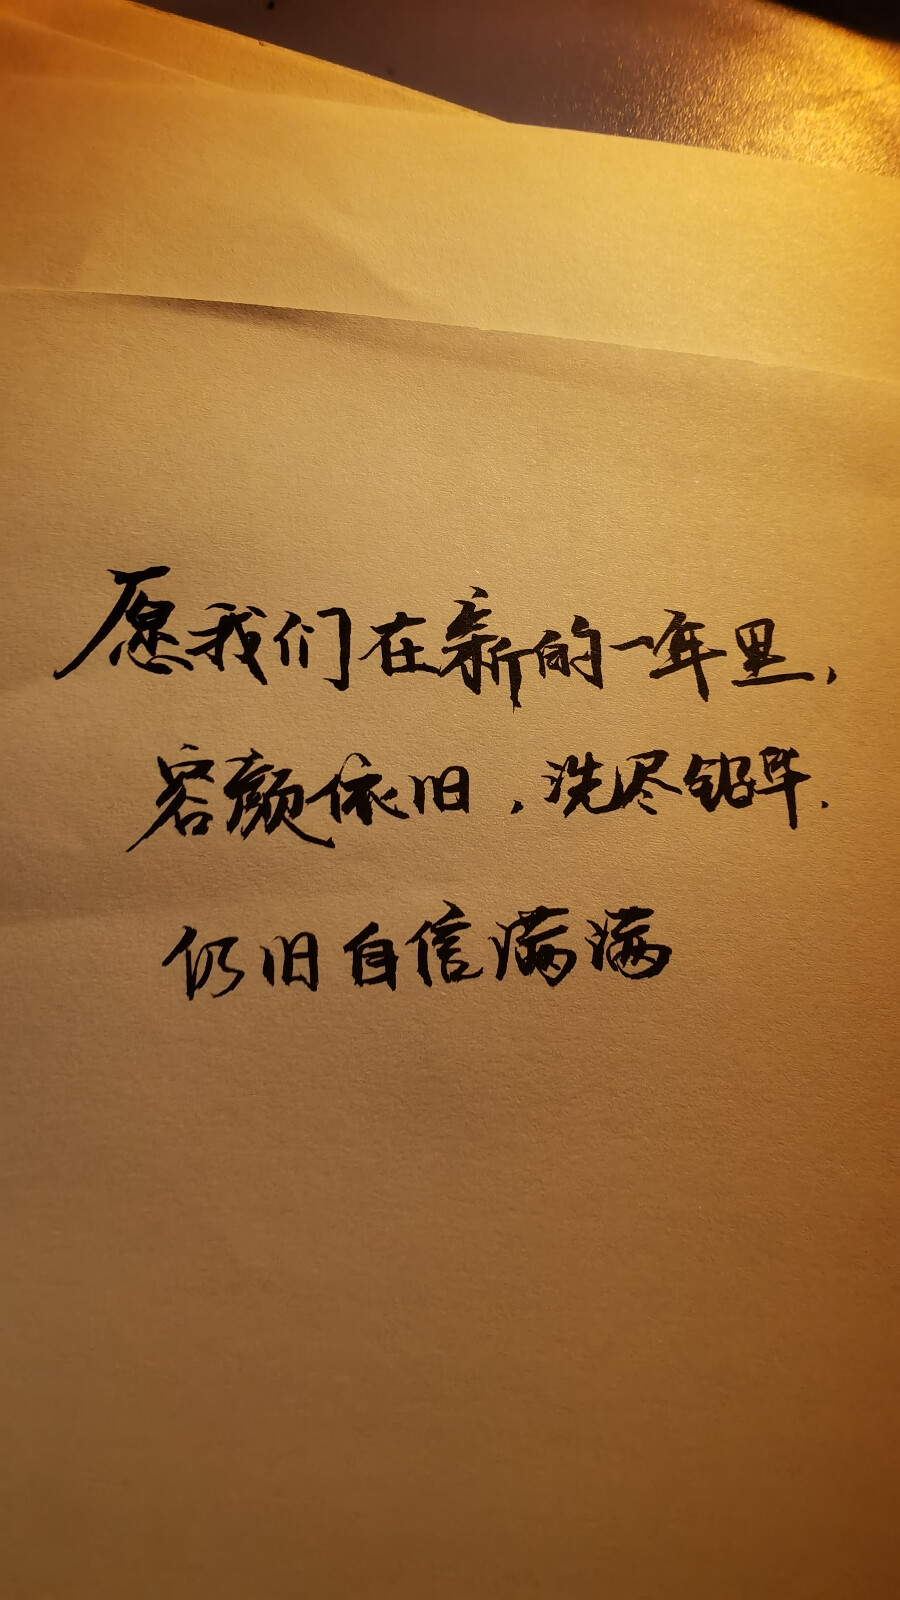 愿我们在新的一年里，
容颜依旧，洗尽铅华，
仍旧自信满满